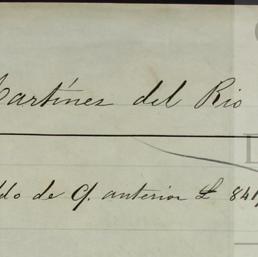 Martínez del Rio
do de C/. anterior £ 841